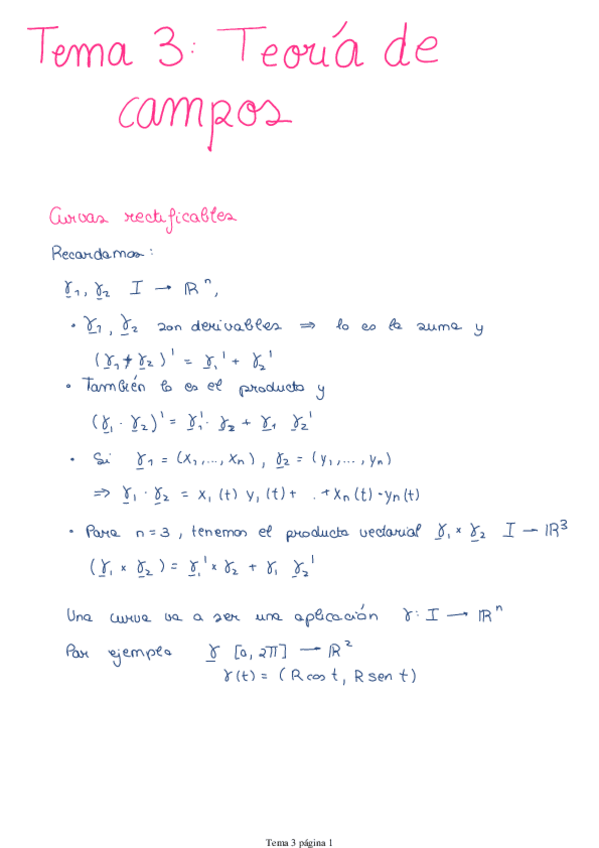 Tema 3: Teoría de
campos
Curvas rectificables
Recordamos:
γ₁, γ₂ I → ℝⁿ,
• γ₁, γ₂ son derivables ⇒ lo es la suma y
(γ₁ + γ₂)' = γ₁' + γ₂'
• También lo es el producto y
(γ₁ · γ₂)' = γ₁' · γ₂ + γ₁ γ₂'
• Si γ₁ = (x₁, ..., xₙ), γ₂ = (y₁, ..., yₙ)
⇒ γ₁ · γ₂ = x₁(t) y₁(t) + . + xₙ(t) · yₙ(t)
• Para n = 3, tenemos el producto vectorial γ₁ × γ₂ I → ℝ³
(γ₁ × γ₂) = γ₁' × γ₂ + γ₁ γ₂'
Una curva va a ser una aplicación γ: I → ℝⁿ
Por ejemplo γ [0, 2π] → ℝ²
γ(t) = (R cos t, R sen t)
Tema 3 página 1